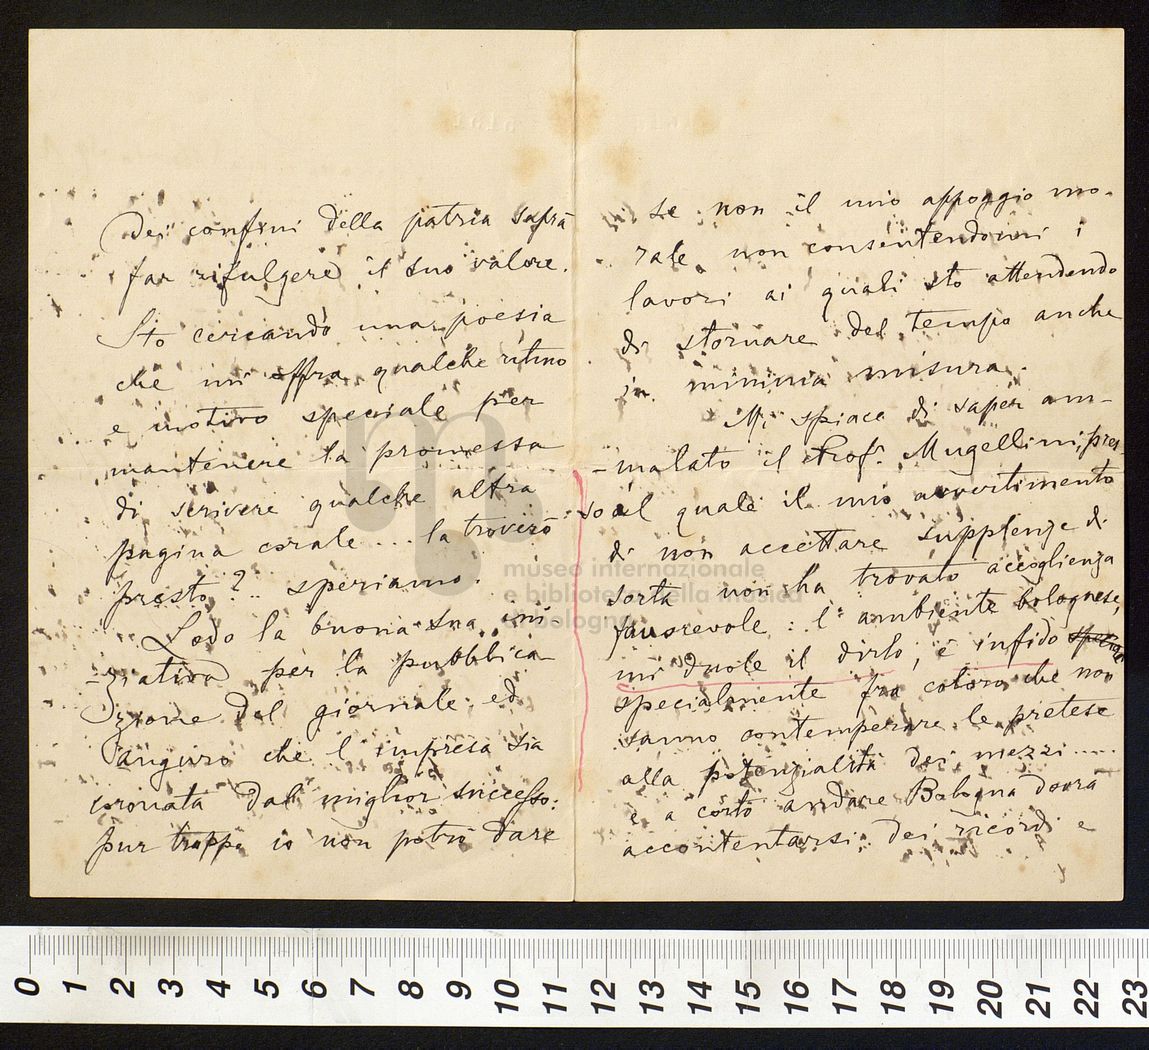 dei confini della patria saprà
far rifulgere il suo valore.
Sto cercando una poesia
che mi offra qualche ritmo
e motivo speciale per
mantenere la promessa
di scrivere qualche altra
pagina corale... la troverò
presto?.. speriamo.
Lodo la buona sua ini-
-ziativa per la pubblica-
zione del giornale ed
auguro che l'impresa sia
coronata dal miglior successo:
pur troppo io non potrò dare
se non il mio appoggio mo-
rale non consentendomi i
lavori ai quali sto attendendo
di stornare del tempo anche
in minima misura.
Mi spiace di saper am-
-malato il Prof. Mugellini, pres-
so al quale il mio avvertimento
di non accettare supplenze di
sorta non ha trovato accoglienza
favorevole: l'ambiente bolognese,
mi duole il dirlo, è infido
specialmente fra coloro che non
sanno contemperare le pretese
alla potenzialità dei mezzi.....
e a corto andare Bologna dovrà
accontentarsi dei ricordi e
museo internazionale
e biblioteca della musica
di bologna
0 1 2 3 4 5 6 7 8 9 10 11 12 13 14 15 16 17 18 19 20 21 22 23